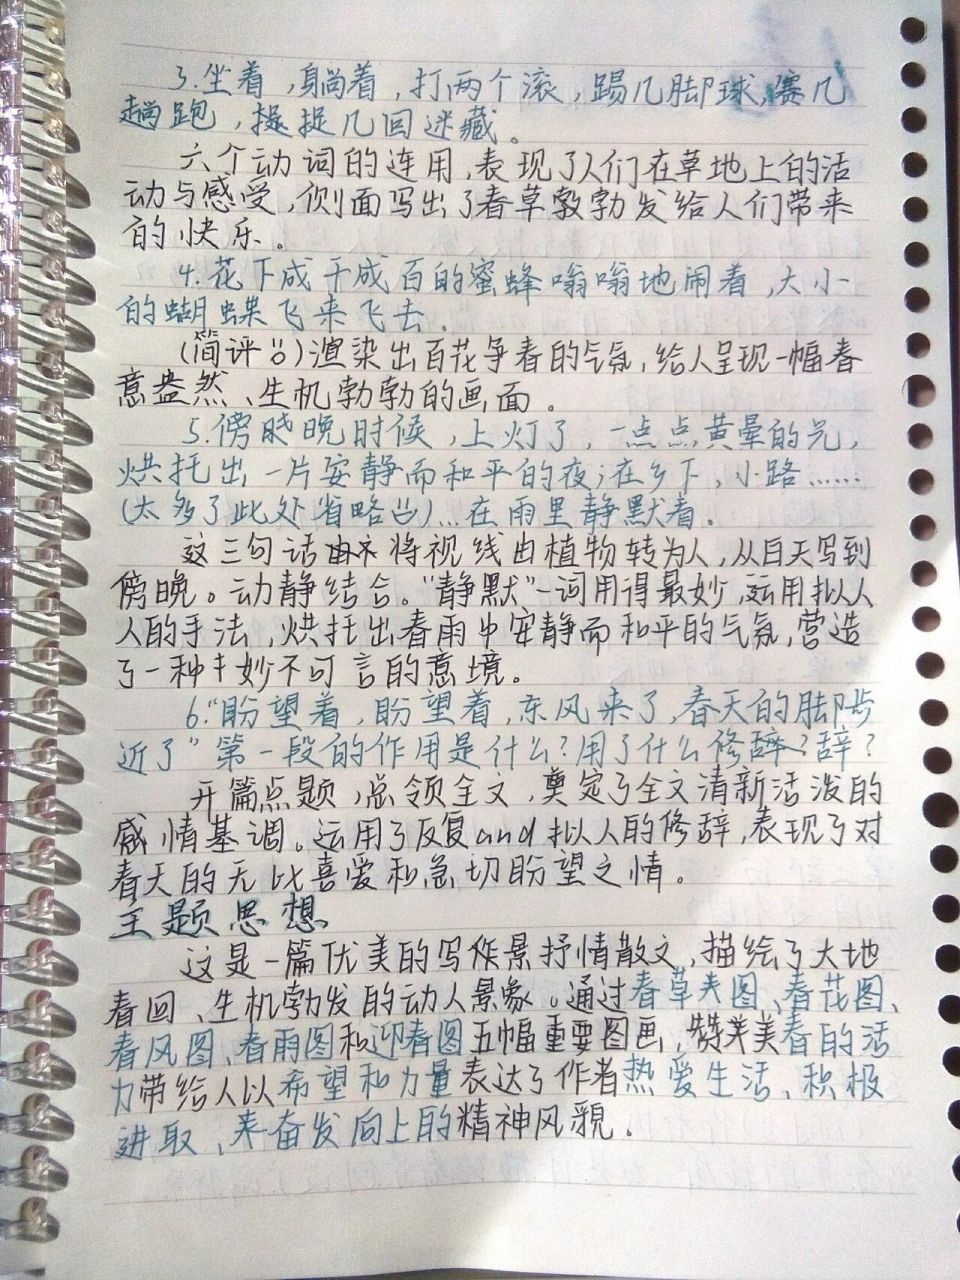 3.坐着，躺着，打两个滚，踢几脚球，赛几
趟跑，捉几回迷藏。
六个动词的连用，表现了人们在草地上的活
动与感受，侧面写出了春草勃发给人们带来
的快乐。
4.花下成千成百的蜜蜂嗡嗡地闹着，大小
的蝴蝶飞来飞去.
(简评:)渲染出百花争春的气氛，给人呈现一幅春
意盎然、生机勃勃的画面。
5.傍晚时候，上灯了，一点点黄晕的光，
烘托出一片安静而和平的夜；在乡下，小路……
(太多了此处省略)…在雨里静默着。
这三句话将视线由植物转为人，从白天写到
傍晚。动静结合。“静默”一词用得最妙，运用拟人
人的手法，烘托出春雨中安静而和平的气氛，营造
了一种妙不可言的意境。
6.“盼望着，盼望着，东风来了，春天的脚步
近了”第一段的作用是什么？用了什么修辞？
开篇点题，总领全文，奠定了全文清新活泼的
感情基调。运用了反复and拟人的修辞，表现了对
春天的无比喜爱和急切盼望之情。
主题思想
这是一篇优美的写景抒情散文，描绘了大地
春回、生机勃发的动人景象。通过春草图、春花图、
春风图、春雨图和迎春图五幅重要图画，赞美春的活
力带给人以希望和力量表达了作者热爱生活、积极
进取、奋发向上的精神风貌.